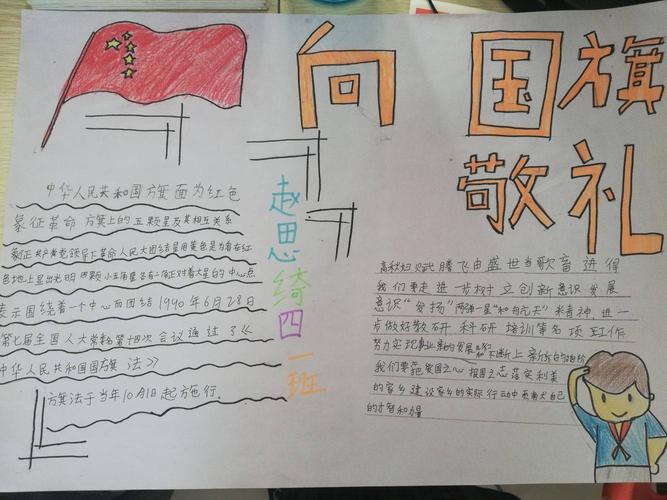 向国旗
敬礼
赵思绮四一班
中华人民共和国方旗面为红色
象征革命 方旗上的五颗星及其相互关系
象征共产党领导下革命人民大团结星用黄色是为着在红
色地上显出光明 四颗小五角星各有一角正对着大星的中心点
表示围绕着一个中心而团结 1990年6月28日
第七届全国人大常务第十四次会议通过了《
中华人民共和国国旗法》
方旗法于当年10月1日起施行.
腾飞由盛世当歌奋进得
我们要走进一步树立创新意识发展
意识"发扬"两弹一星"和"航天"精神.进一
步做好教研 科研 培训等各项工作
努力实现事业的发展和不断上新的台阶
我们要把爱国之心 报国之志落实到美
的家乡建设家乡的实际行动中贡献自己
的才智和力量